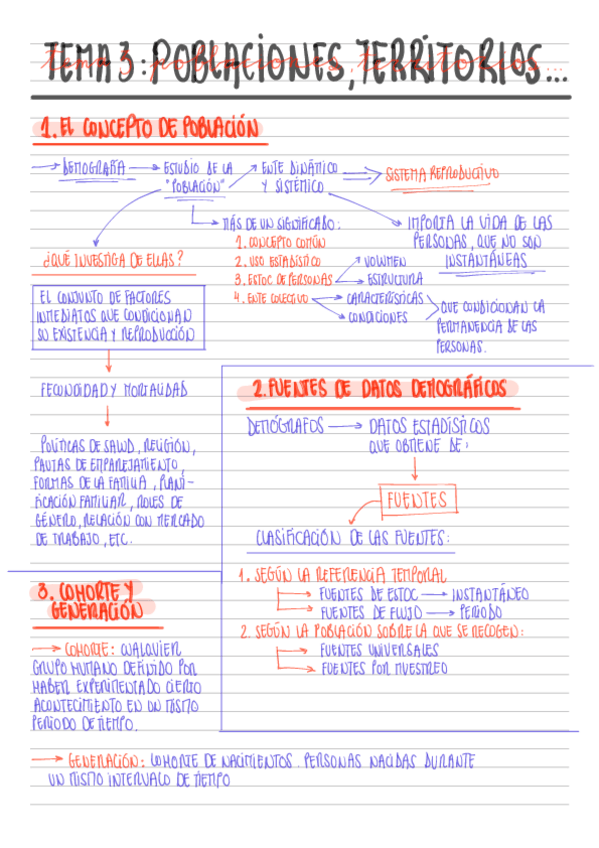 TEMA 3: POBLACIONES, TERRITORIOS...
1. EL CONCEPTO DE POBLACIÓN
DEMOGRAFÍA → ESTUDIO DE LA "POBLACIÓN" → ENTE DINÁMICO Y SISTÉMICO ⇒ SISTEMA REPRODUCTIVO
MÁS DE UN SIGNIFICADO:
1. CONCEPTO COMÚN
2. USO ESTADÍSTICO
3. ESTOC DE PERSONAS
VOLUMEN
ESTRUCTURA
4. ENTE COLECTIVO
CARACTERÍSTICAS
CONDICIONES
QUE CONDICIONAN LA
PERMANENCIA DE LAS
PERSONAS.
IMPORTA LA VIDA DE LAS
PERSONAS, QUE NO SON
INSTANTÁNEAS
¿QUÉ INVESTIGA DE ELLAS?
EL CONJUNTO DE FACTORES
INMEDIATOS QUE CONDICIONAN
SU EXISTENCIA Y REPRODUCCIÓN
FECUNDIDAD Y MORTALIDAD
POLÍTICAS DE SALUD, RELIGIÓN,
PAUTAS DE EMPAREJAMIENTO,
FORMAS DE LA FAMILIA, PLANI-
FICACIÓN FAMILIAR, ROLES DE
GÉNERO, RELACIÓN CON MERCADO
DE TRABAJO, ETC.
2. FUENTES DE DATOS DEMOGRÁFICOS
DEMÓGRAFOS → DATOS ESTADÍSTICOS
QUE OBTIENE DE:
FUENTES
CLASIFICACIÓN DE LAS FUENTES:
1. SEGÚN LA REFERENCIA TEMPORAL
→ FUENTES DE ESTOC → INSTANTÁNEO
→ FUENTES DE FLUJO → PERIODO
2. SEGÚN LA POBLACIÓN SOBRE LA QUE SE RECOGEN:
→ FUENTES UNIVERSALES
→ FUENTES POR MUESTREO
3. COHORTE Y
GENERACIÓN
→ COHORTE: CUALQUIER
GRUPO HUMANO DEFINIDO POR
HABER EXPERIMENTADO CIERTO
ACONTECIMIENTO EN UN MISMO
PERIODO DE TIEMPO.
→ GENERACIÓN: COHORTE DE NACIMIENTOS. PERSONAS NACIDAS DURANTE
UN MISMO INTERVALO DE TIEMPO